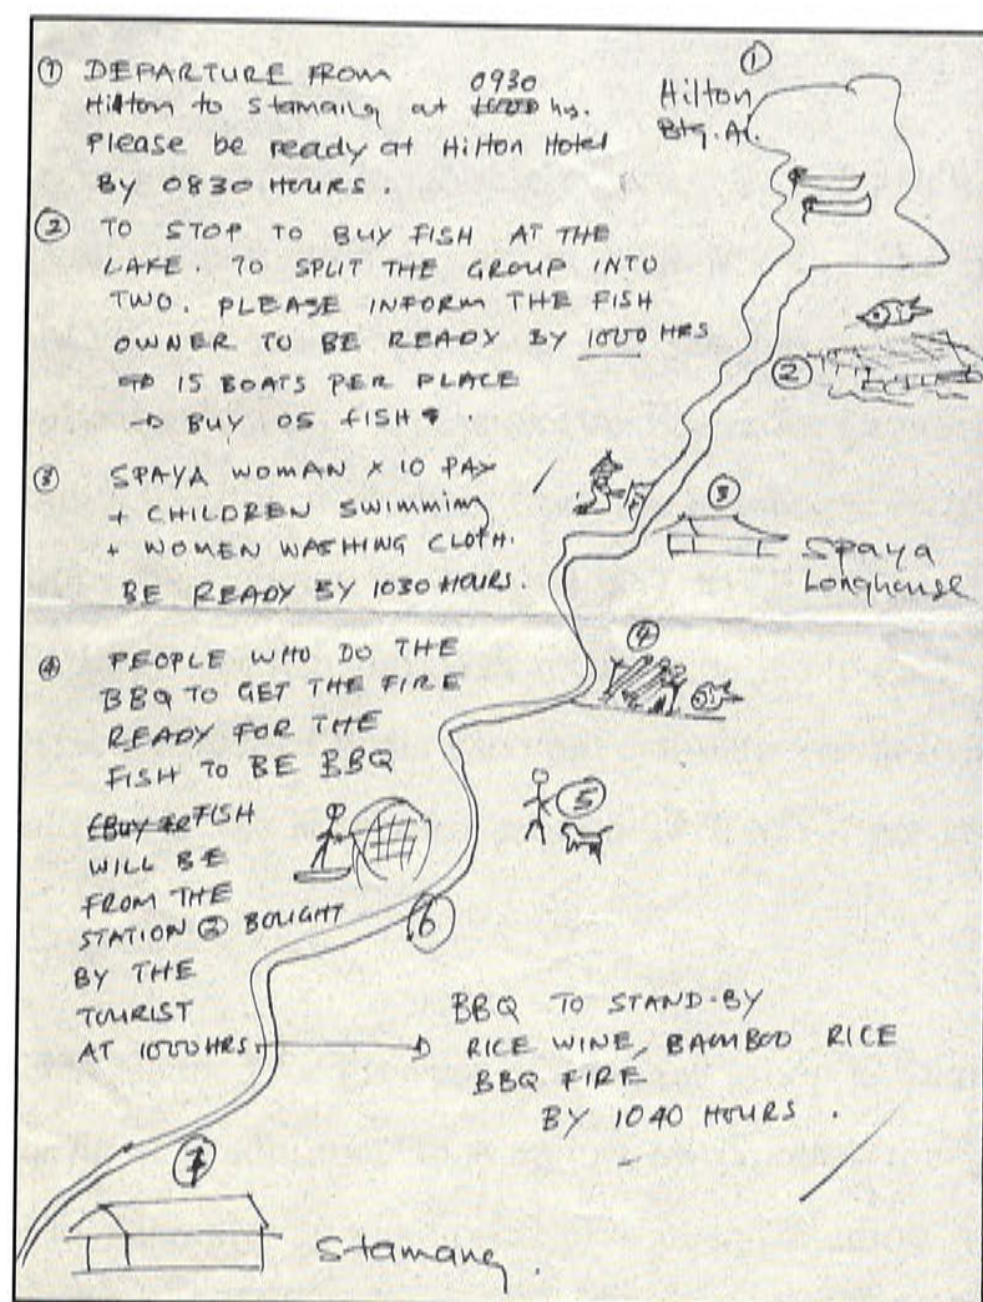 ① DEPARTURE FROM
0930
Hilton to Stamang at hrs.
Please be ready at Hilton Hotel
BY 0830 HOURS.
② TO STOP TO BUY FISH AT THE
LAKE. TO SPLIT THE GROUP INTO
TWO. PLEASE INFORM THE FISH
OWNER TO BE READY BY 1000 HRS
→ 15 BOATS PER PLACE
→ BUY 05 FISH
③ SPAYA WOMAN x 10 PAX
+ CHILDREN SWIMMING
+ WOMEN WASHING CLOTH.
BE READY BY 1030 HOURS.
④ PEOPLE WHO DO THE
BBQ TO GET THE FIRE
READY FOR THE
FISH TO BE BBQ
FISH
WILL BE
FROM THE
STATION ② BOUGHT
BY THE
TOURIST
AT 1000 HRS.
BBQ TO STAND-BY
RICE WINE, BAMBOO RICE
BBQ FIRE
BY 1040 HOURS.
①
Hilton
Btg. Ai.
②
③
Spaya
Longhouse
④
⑤
⑥
⑦
Stamang.